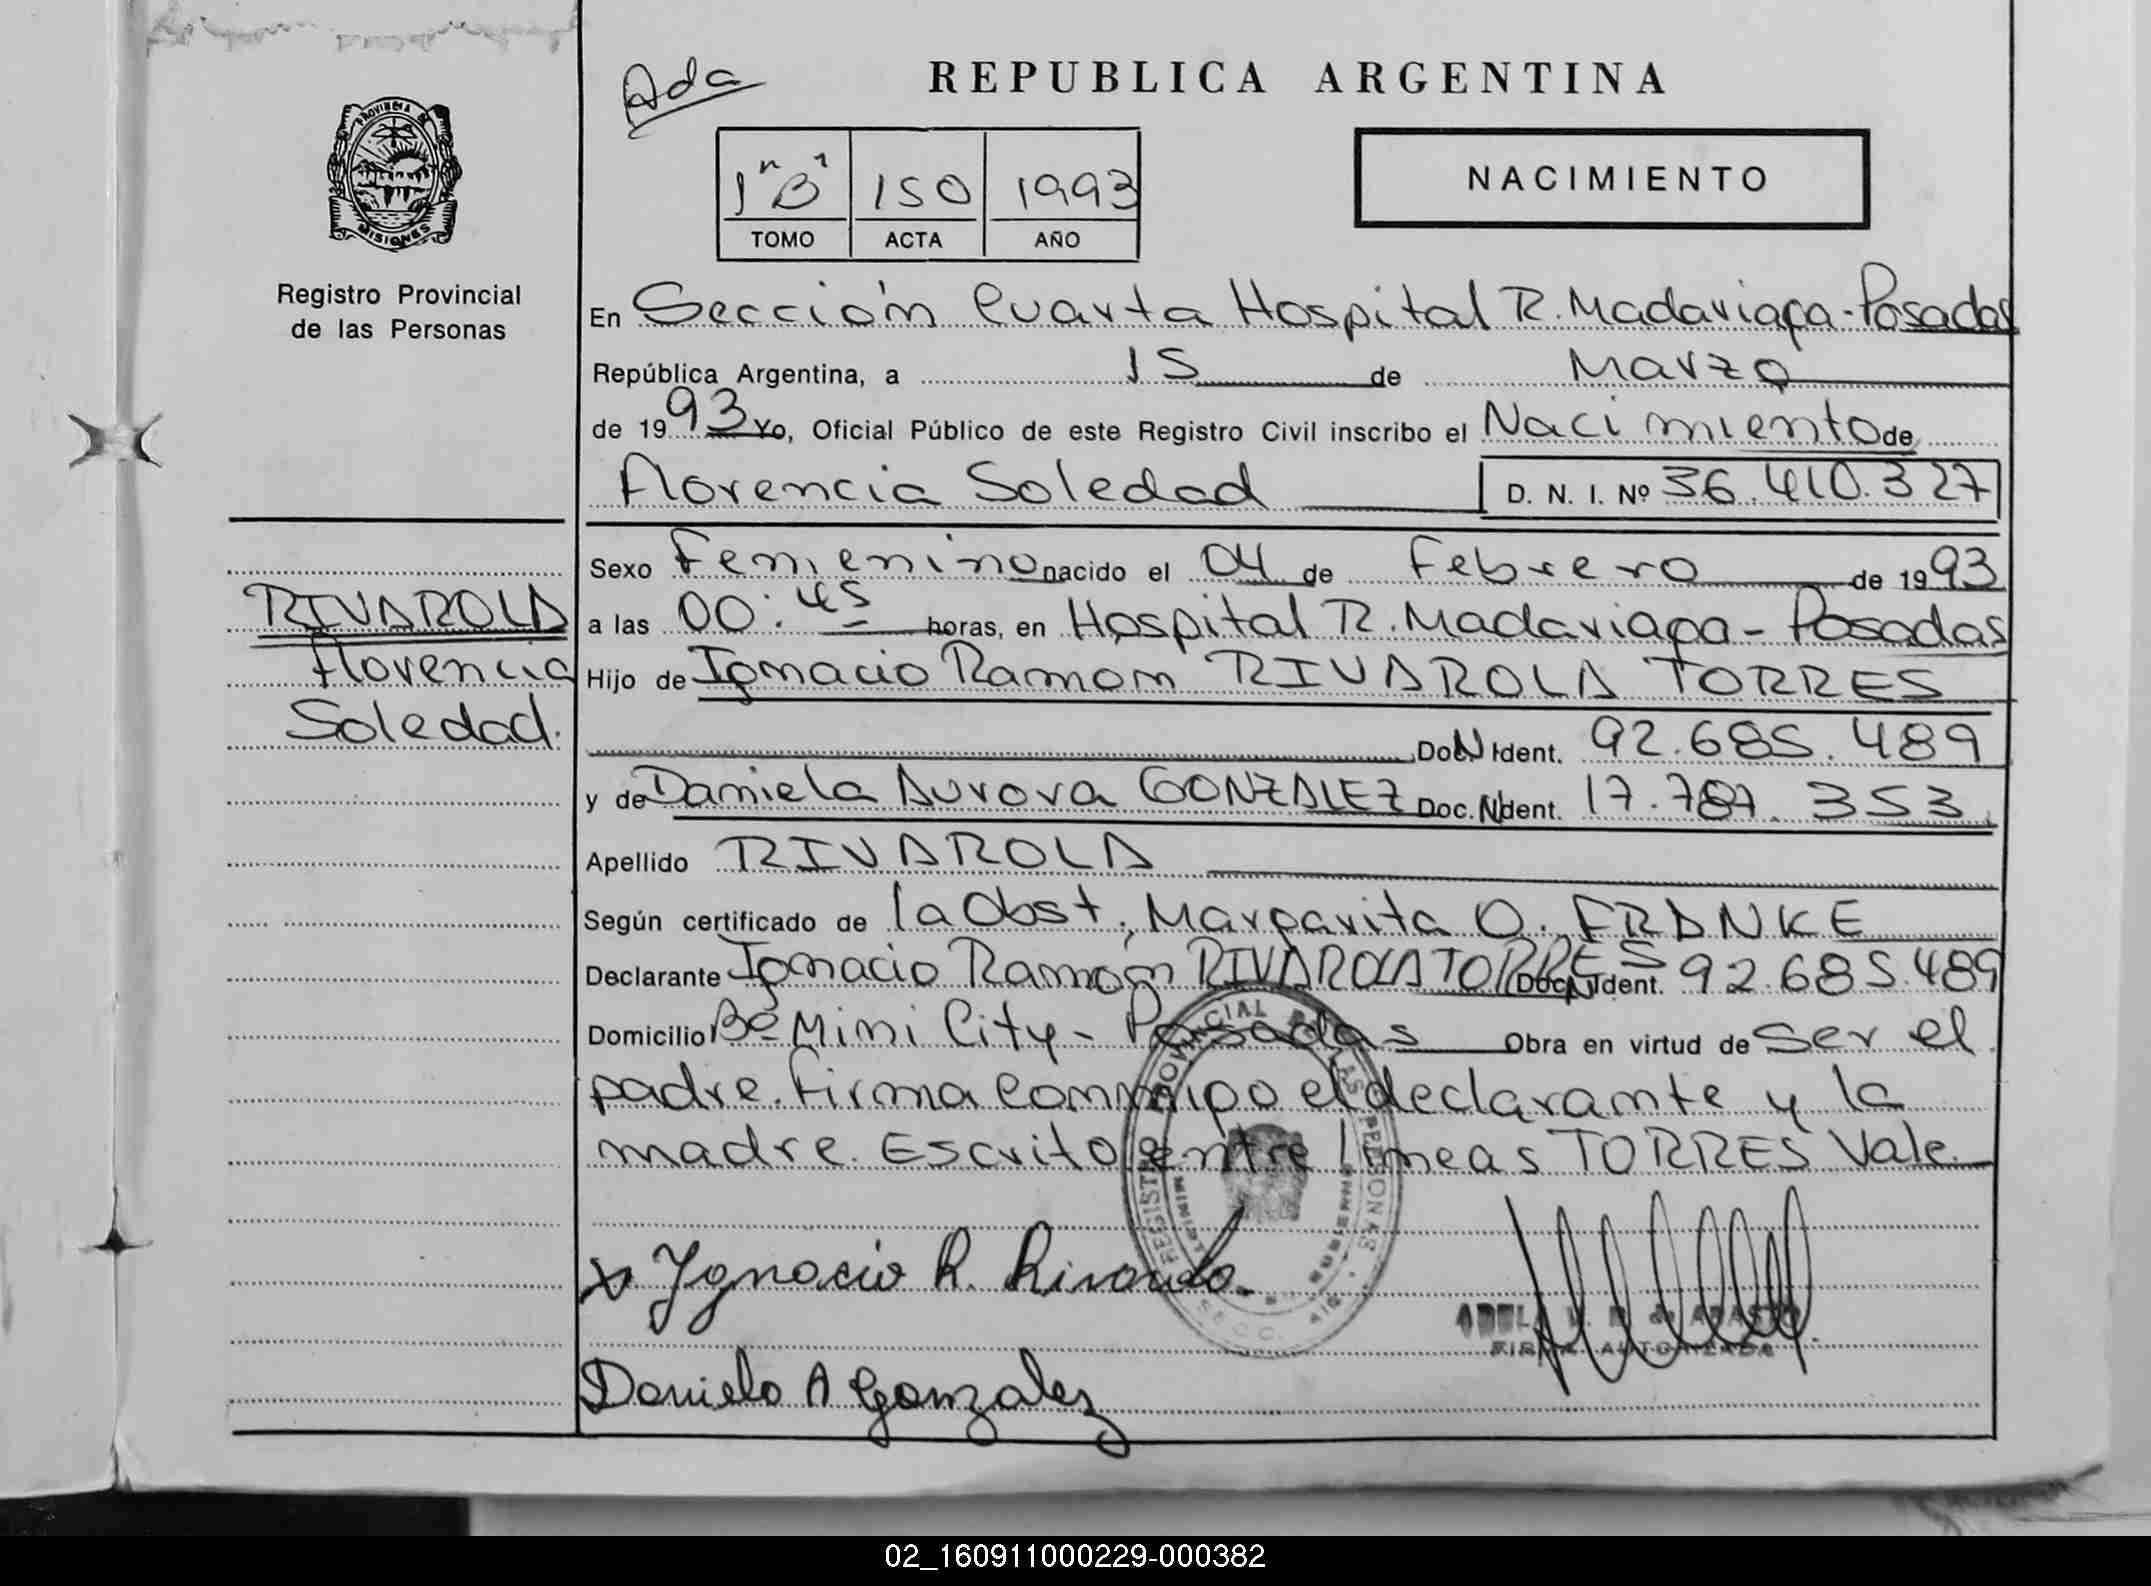 Ada
REPUBLICA ARGENTINA
1º "B" 150 1993
TOMO ACTA AÑO
NACIMIENTO
PROVINCIA DE
MISIONES
Registro Provincial
de las Personas
En Sección Cuarta Hospital R. Madariaga-Posadas
República Argentina, a 15 de Marzo
de 1993 Yo, Oficial Público de este Registro Civil inscribo el Nacimiento de
Florencia Soledad D. N. I. Nº 36.410.327
Sexo Femenino nacido el 04 de Febrero de 1993
a las 00:45 horas, en Hospital R. Madariaga - Posadas
Hijo de Ignacio Ramon RIVAROLA TORRES
Doc. N Ident. 92.685.489
y de Daniela Aurora GONZALEZ Doc. N Ident. 17.787.353
Apellido RIVAROLA
Según certificado de la Obst. Margarita O. FRANKE
Declarante Ignacio Ramón RIVAROLA TORRES Doc. N Ident. 92.685.489
Domicilio Bº Mini City - Posadas Obra en virtud de Ser el
padre. Firma conmigo el declarante y la
madre. Escrito entre líneas TORRES Vale.
RIVAROLA
Florencia
Soledad.
REGISTRO PROVINCIAL DE LAS PERSONAS
MISIONES
SECC.
x Ygnacio R. Rivarola.
FIRMA AUTORIZADA
Daniela A Gonzalez
02_160911000229-000382